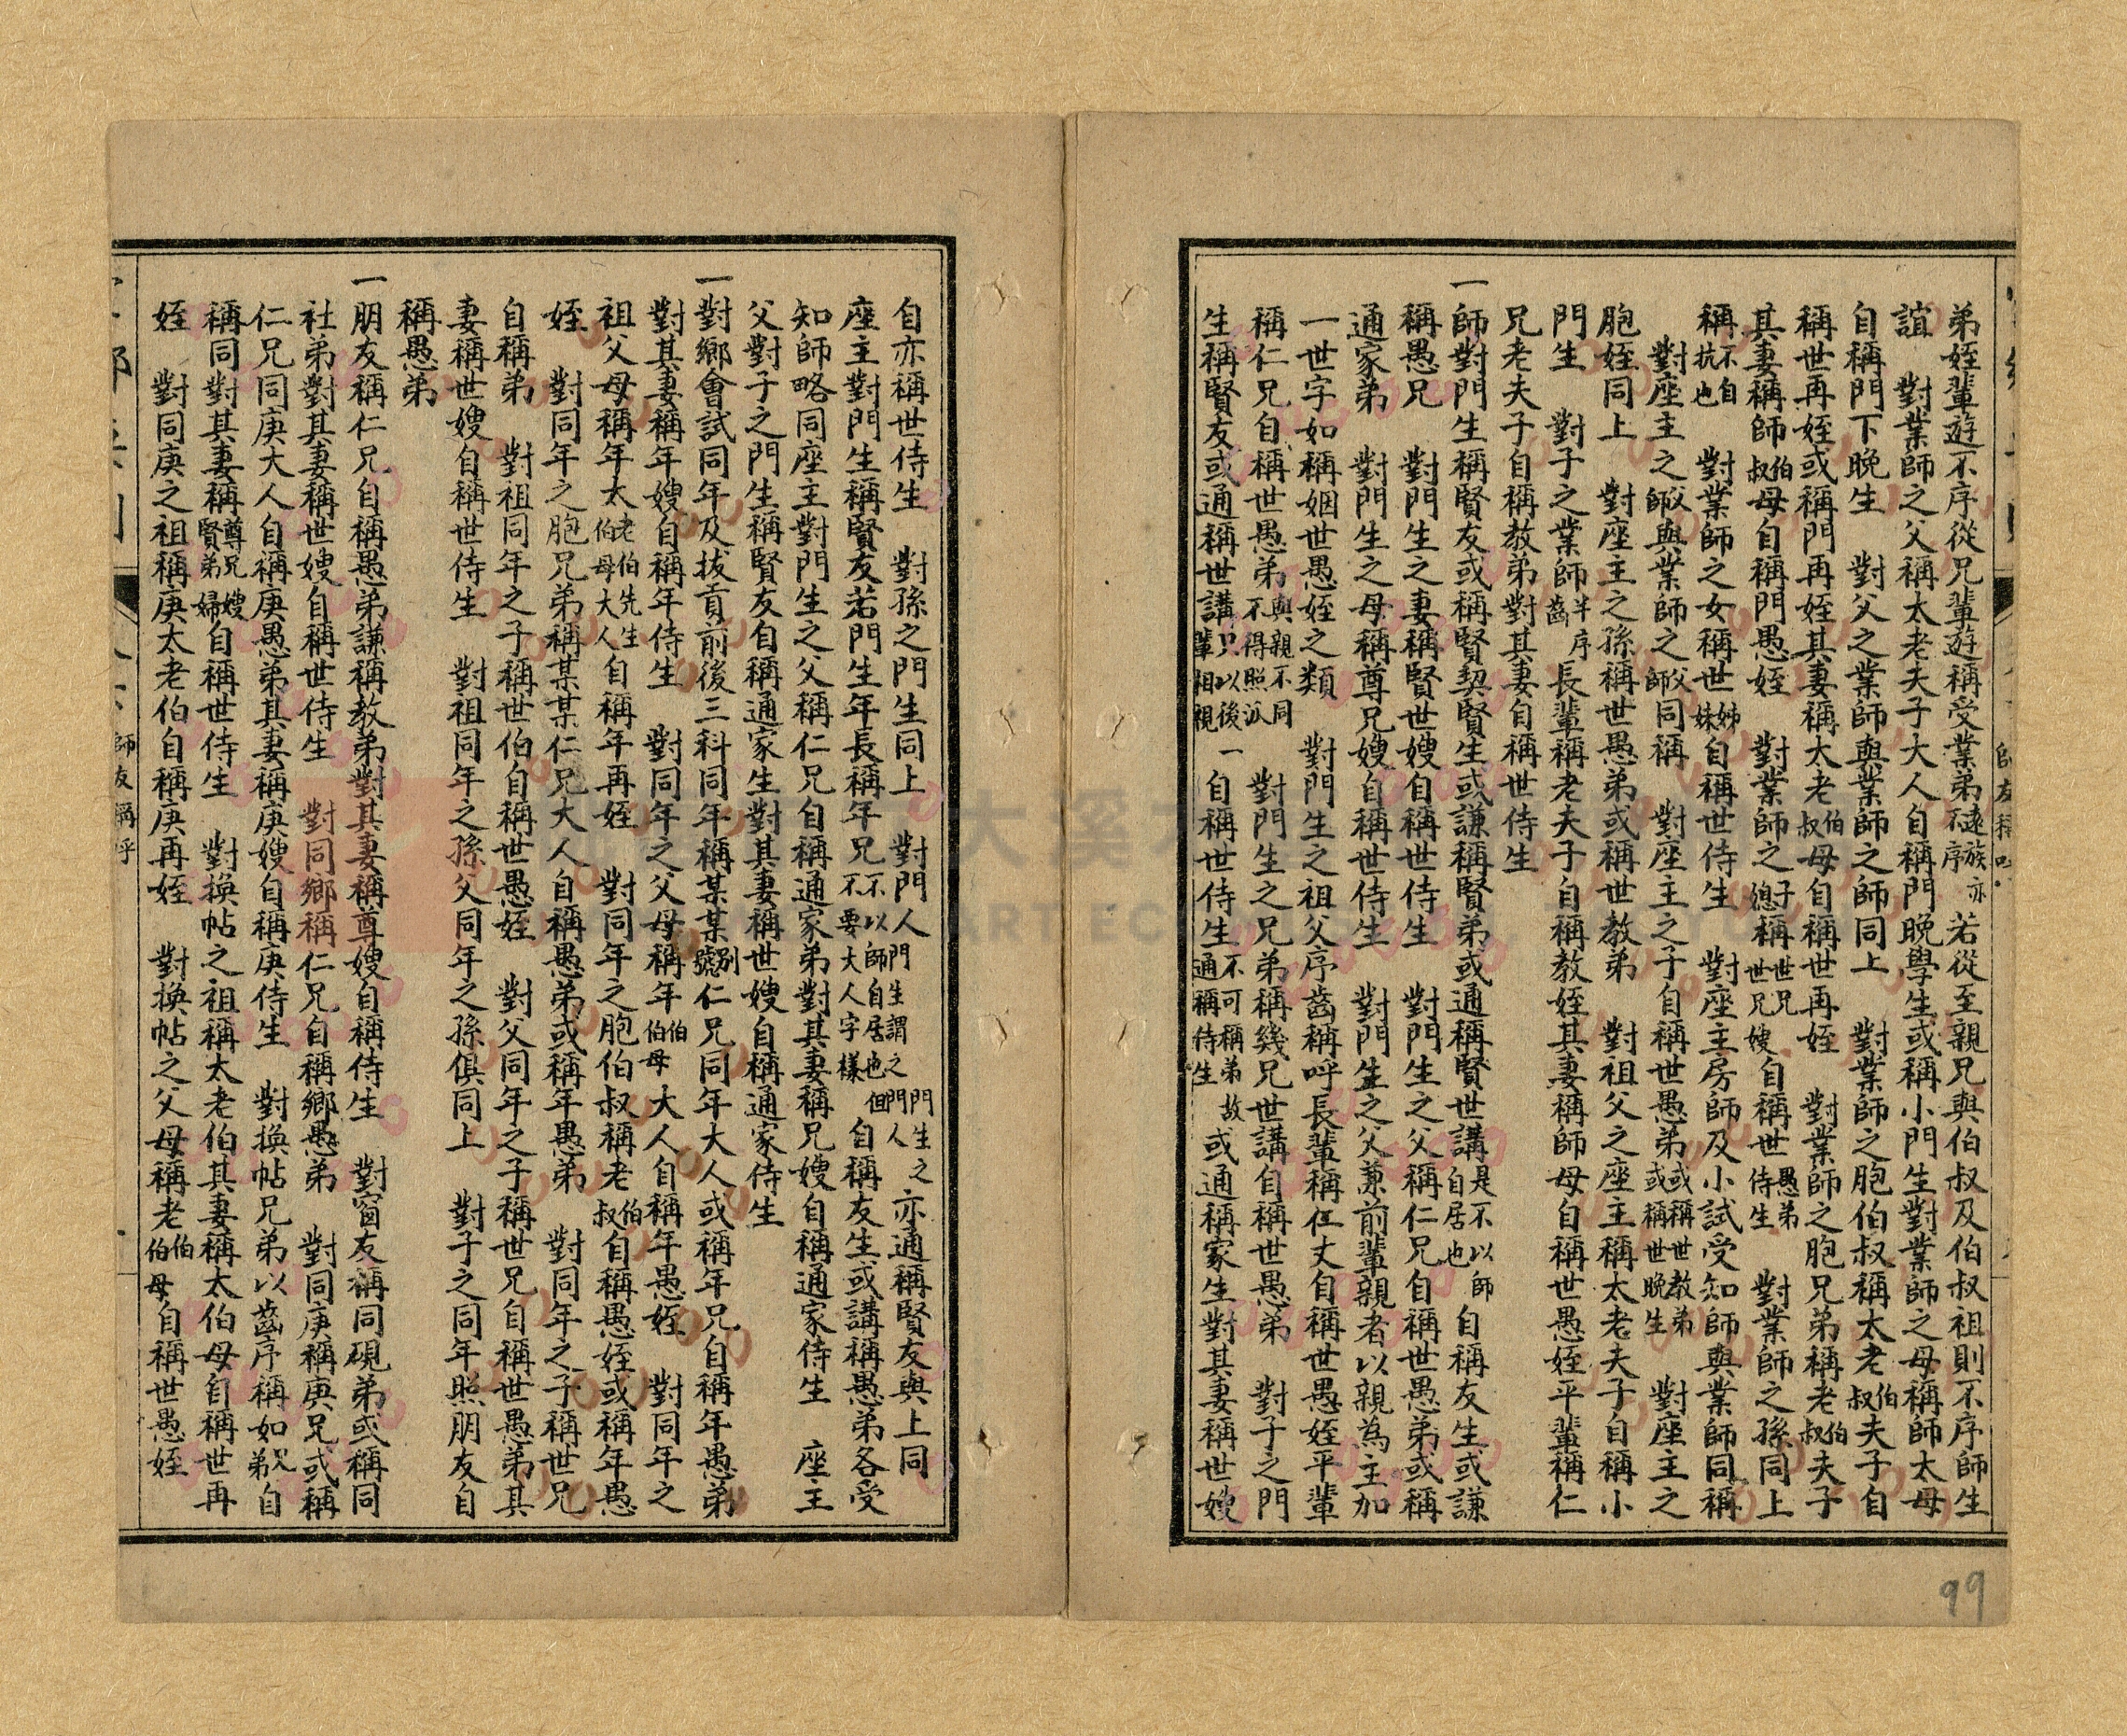 弟姪輩遊不序從兄輩遊稱受業弟遠族亦不序若從至親兄與伯叔及伯叔祖則不序師生
誼　對業師之父稱太老夫子大人自稱門晚學生或稱小門生對業師之母稱師太母
自稱門下晚生　對父之業師與業師之師同上　對業師之胞伯叔稱太老伯叔夫子自
稱世再姪或稱門再姪其妻稱太老伯叔母自稱世再姪　對業師之胞兄弟稱老伯叔夫子
其妻稱師伯叔母自稱門愚姪　對業師之子媳稱世兄世兄嫂自稱世愚弟侍生　對業師之孫同上
稱不自抗也　對業師之女稱世姊妹自稱世侍生　對座主房師及小試受知師與業師同稱
對座主之父師與業師之父師同稱　對座主之子自稱世愚弟或稱世教弟或稱世晚生　對座主之
胞姪同上　對座主之孫稱世愚弟或稱世教弟　對祖父之座主稱太老夫子自稱小
門生　對子之業師半序齒長輩稱老夫子自稱教姪其妻稱師母自稱世愚姪平輩稱仁
兄老夫子自稱教弟對其妻自稱世侍生
一師對門生稱賢友或稱賢契賢生或謙稱賢弟或通稱賢世講是不以師自居也自稱友生或謙
稱愚兄　對門生之妻稱賢世嫂自稱世侍生　對門生之父稱仁兄自稱世愚弟或稱
通家弟　對門生之母稱尊兄嫂自稱世侍生　對門生之父兼前輩親者以親為主加
一世字如稱姻世愚姪之類　對門生之祖父序齒稱呼長輩稱仁丈自稱世愚姪平輩
稱仁兄自稱世愚弟與親不同不得照派　對門生之兄弟稱幾兄世講自稱世愚弟　對子之門
生稱賢友或通稱世講只以後輩相視一自稱世侍生不可稱弟故通稱侍生或通稱家生對其妻稱世嫂
師友稱呼
99
自亦稱世侍生　對孫之門生同上　對門人門生謂之門人門生之亦通稱賢友與上同
座主對門生稱賢友若門生年長稱年兄不以師自居也但不要大人字樣自稱友生或講稱愚弟各受
知師略同座主對門生之父稱仁兄自稱通家弟對其妻稱兄嫂自稱通家侍生　座主
父對子之門生稱賢友自稱通家生對其妻稱世嫂自稱通家侍生
一對鄉會試同年及拔貢前後三科同年稱某某別號仁兄同年大人或稱年兄自稱年愚弟
對其妻稱年嫂自稱年侍生　對同年之父母稱年伯伯母大人自稱年愚姪　對同年之
祖父母稱年太老伯先生伯母大人自稱年再姪　對同年之胞伯叔稱老伯叔自稱愚姪或稱年愚
姪　對同年之胞兄弟稱某某仁兄大人自稱愚弟或稱年愚弟　對同年之子稱世兄
自稱弟　對祖同年之子稱世伯自稱世愚姪　對父同年之子稱世兄自稱世愚弟其
妻稱世嫂自稱世侍生　對祖同年之孫父同年之孫俱同上　對子之同年照朋友自
稱愚弟
一朋友稱仁兄自稱愚弟謙稱教弟對其妻稱尊嫂自稱侍生　對窗友稱同硯弟或稱同
社弟對其妻稱世嫂自稱世侍生　對同鄉稱仁兄自稱鄉愚弟　對同庚稱庚兄或稱
仁兄同庚大人自稱庚愚弟其妻稱庚嫂自稱庚侍生　對換帖兄弟以齒序稱如兄弟自
稱同對其妻稱尊兄嫂賢弟婦自稱世侍生　對換帖之祖稱太老伯其妻稱太伯母自稱世再
姪　對同庚之祖稱庚太老伯自稱庚再姪　對換帖之父母稱老伯伯母自稱世愚姪
師友稱呼